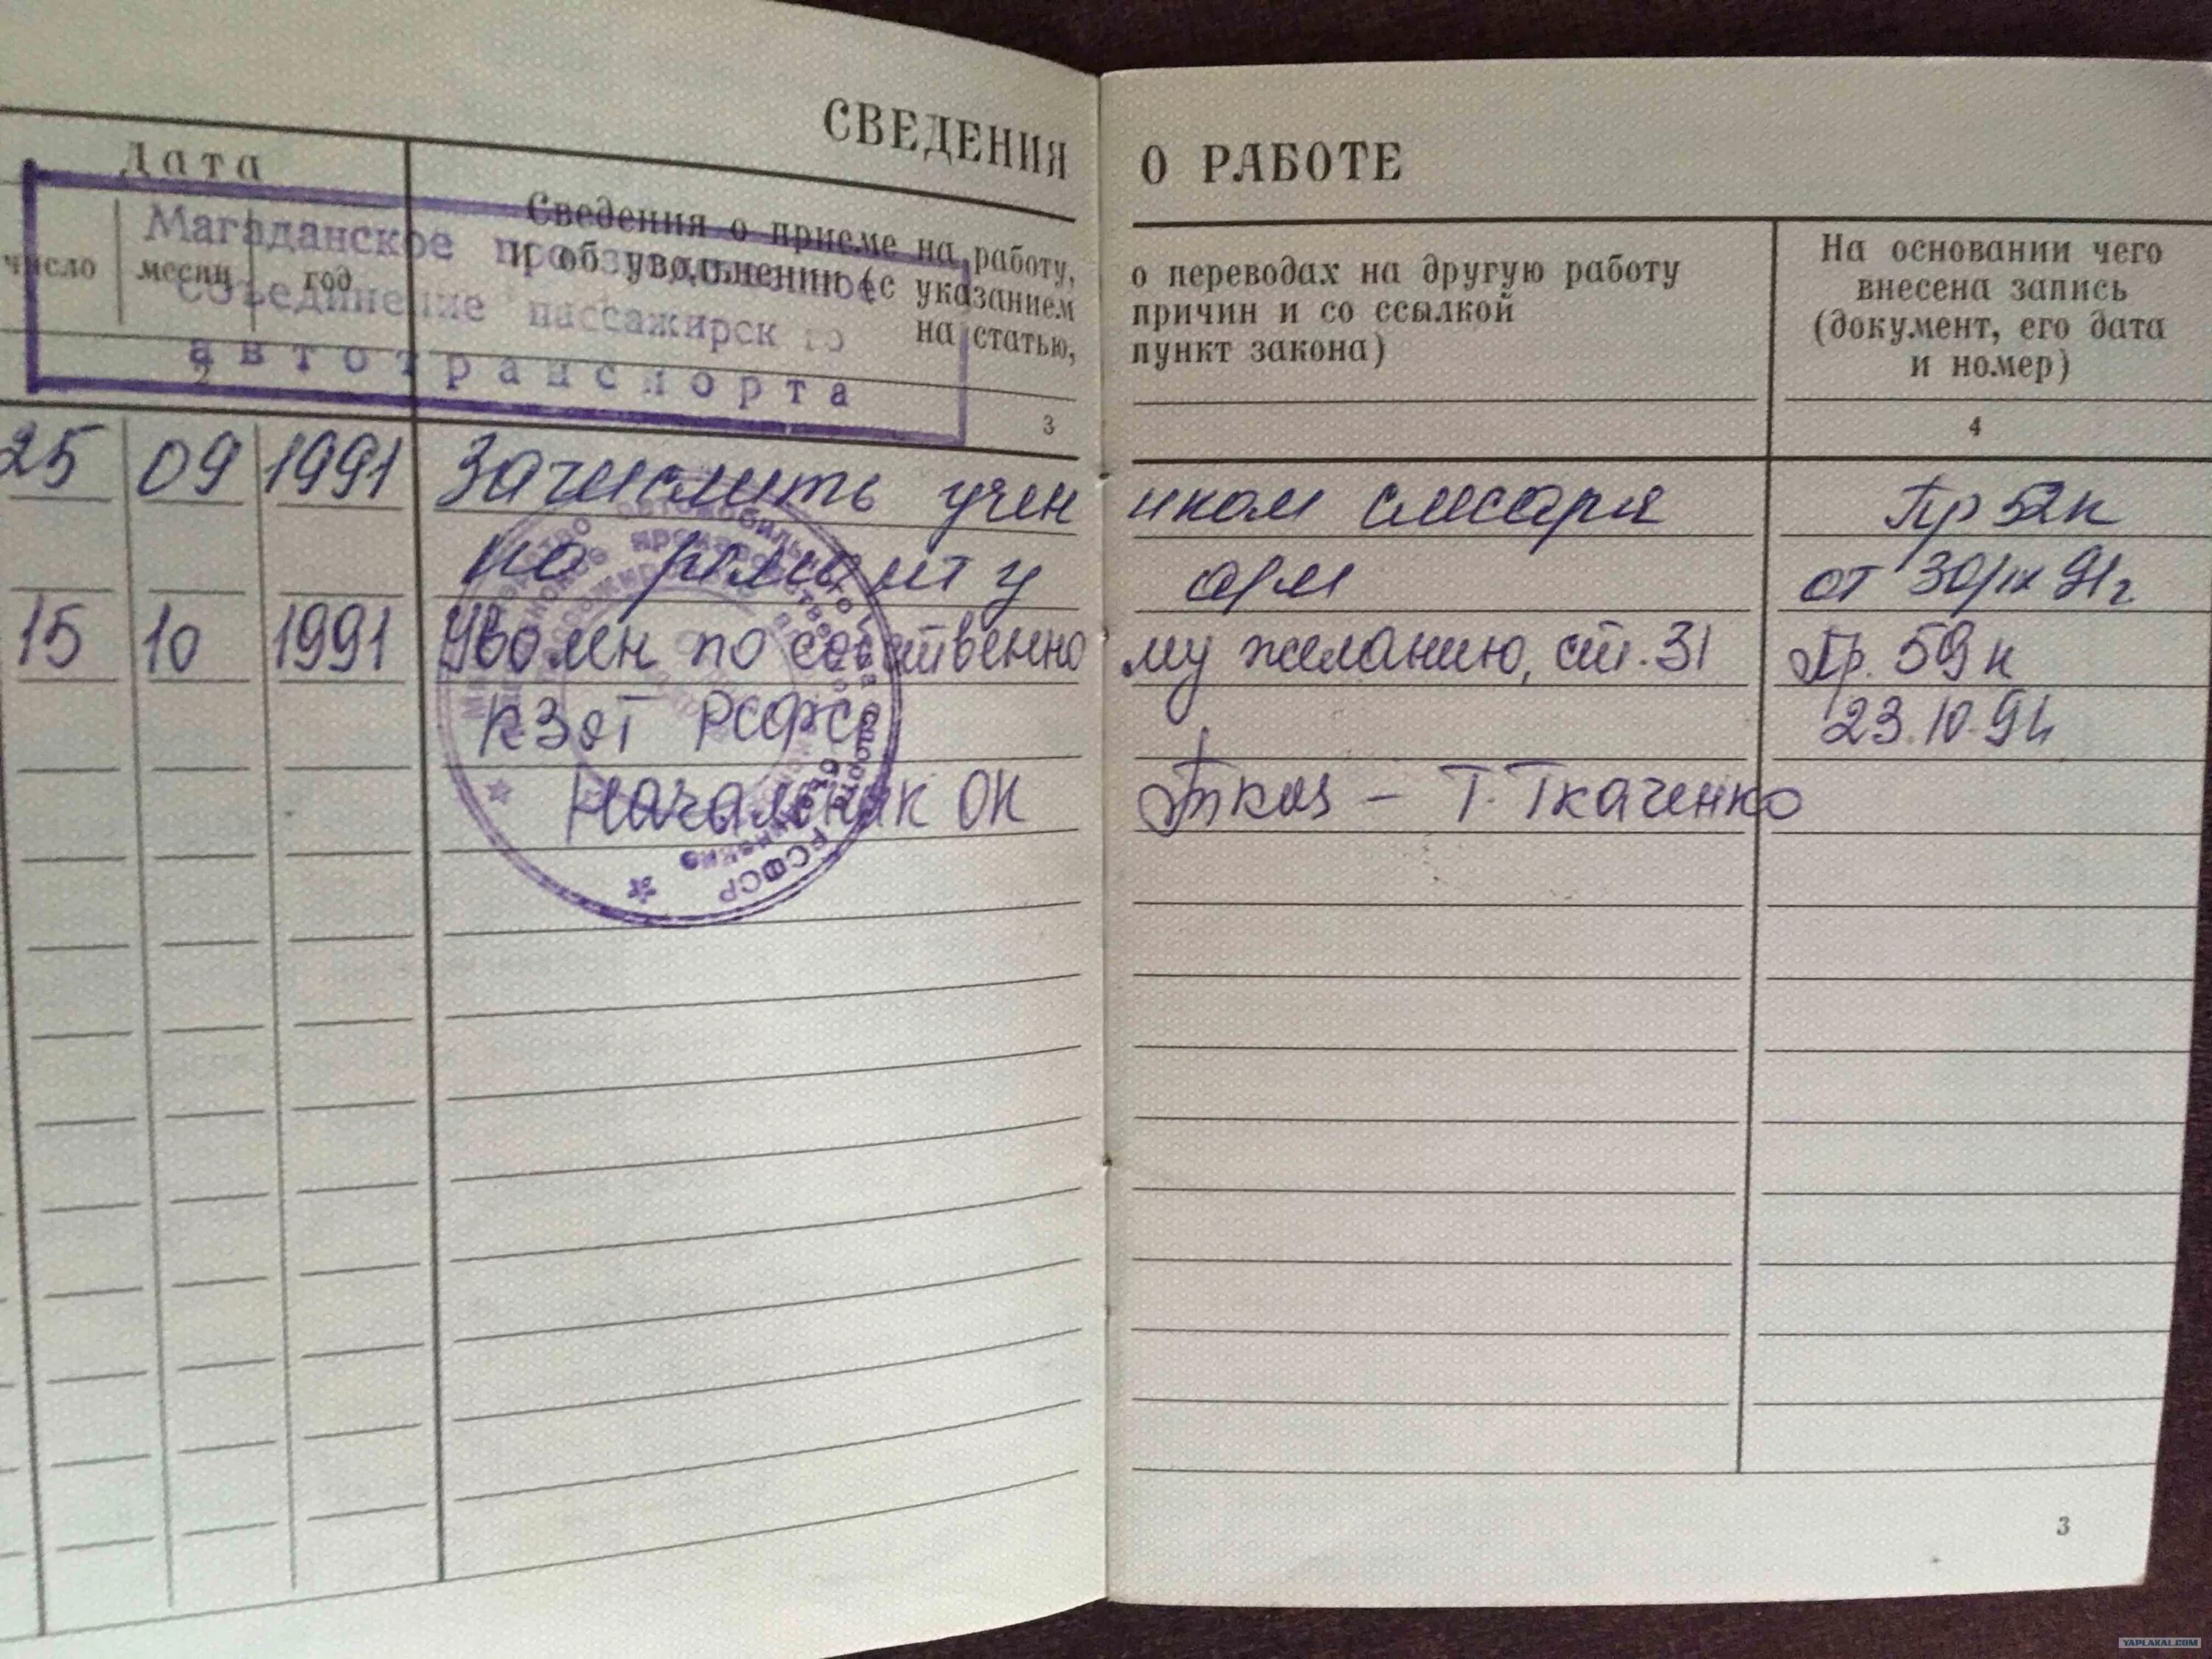 СВЕДЕНИЯ О РАБОТЕ
Дата
число месяц год
Сведения о приеме на работу, о переводах на другую работу
и об увольнении (с указанием причин и со ссылкой
на статью, пункт закона)
На основании чего
внесена запись
(документ, его дата
и номер)
Магаданское производственное
объединение пассажирского
автотранспорта
2 3 4
25 09 1991 Зачислить учеником слесаря Пр 52к
по ремонту а/м от 30/IX 91г
15 10 1991 Уволен по собственному желанию, ст. 31 Пр. 59к
КЗоТ РСФСР 23.10.91
Начальник ОК Ткач – Т. Ткаченко
РСФСР
3
YAPLAKAL.COM